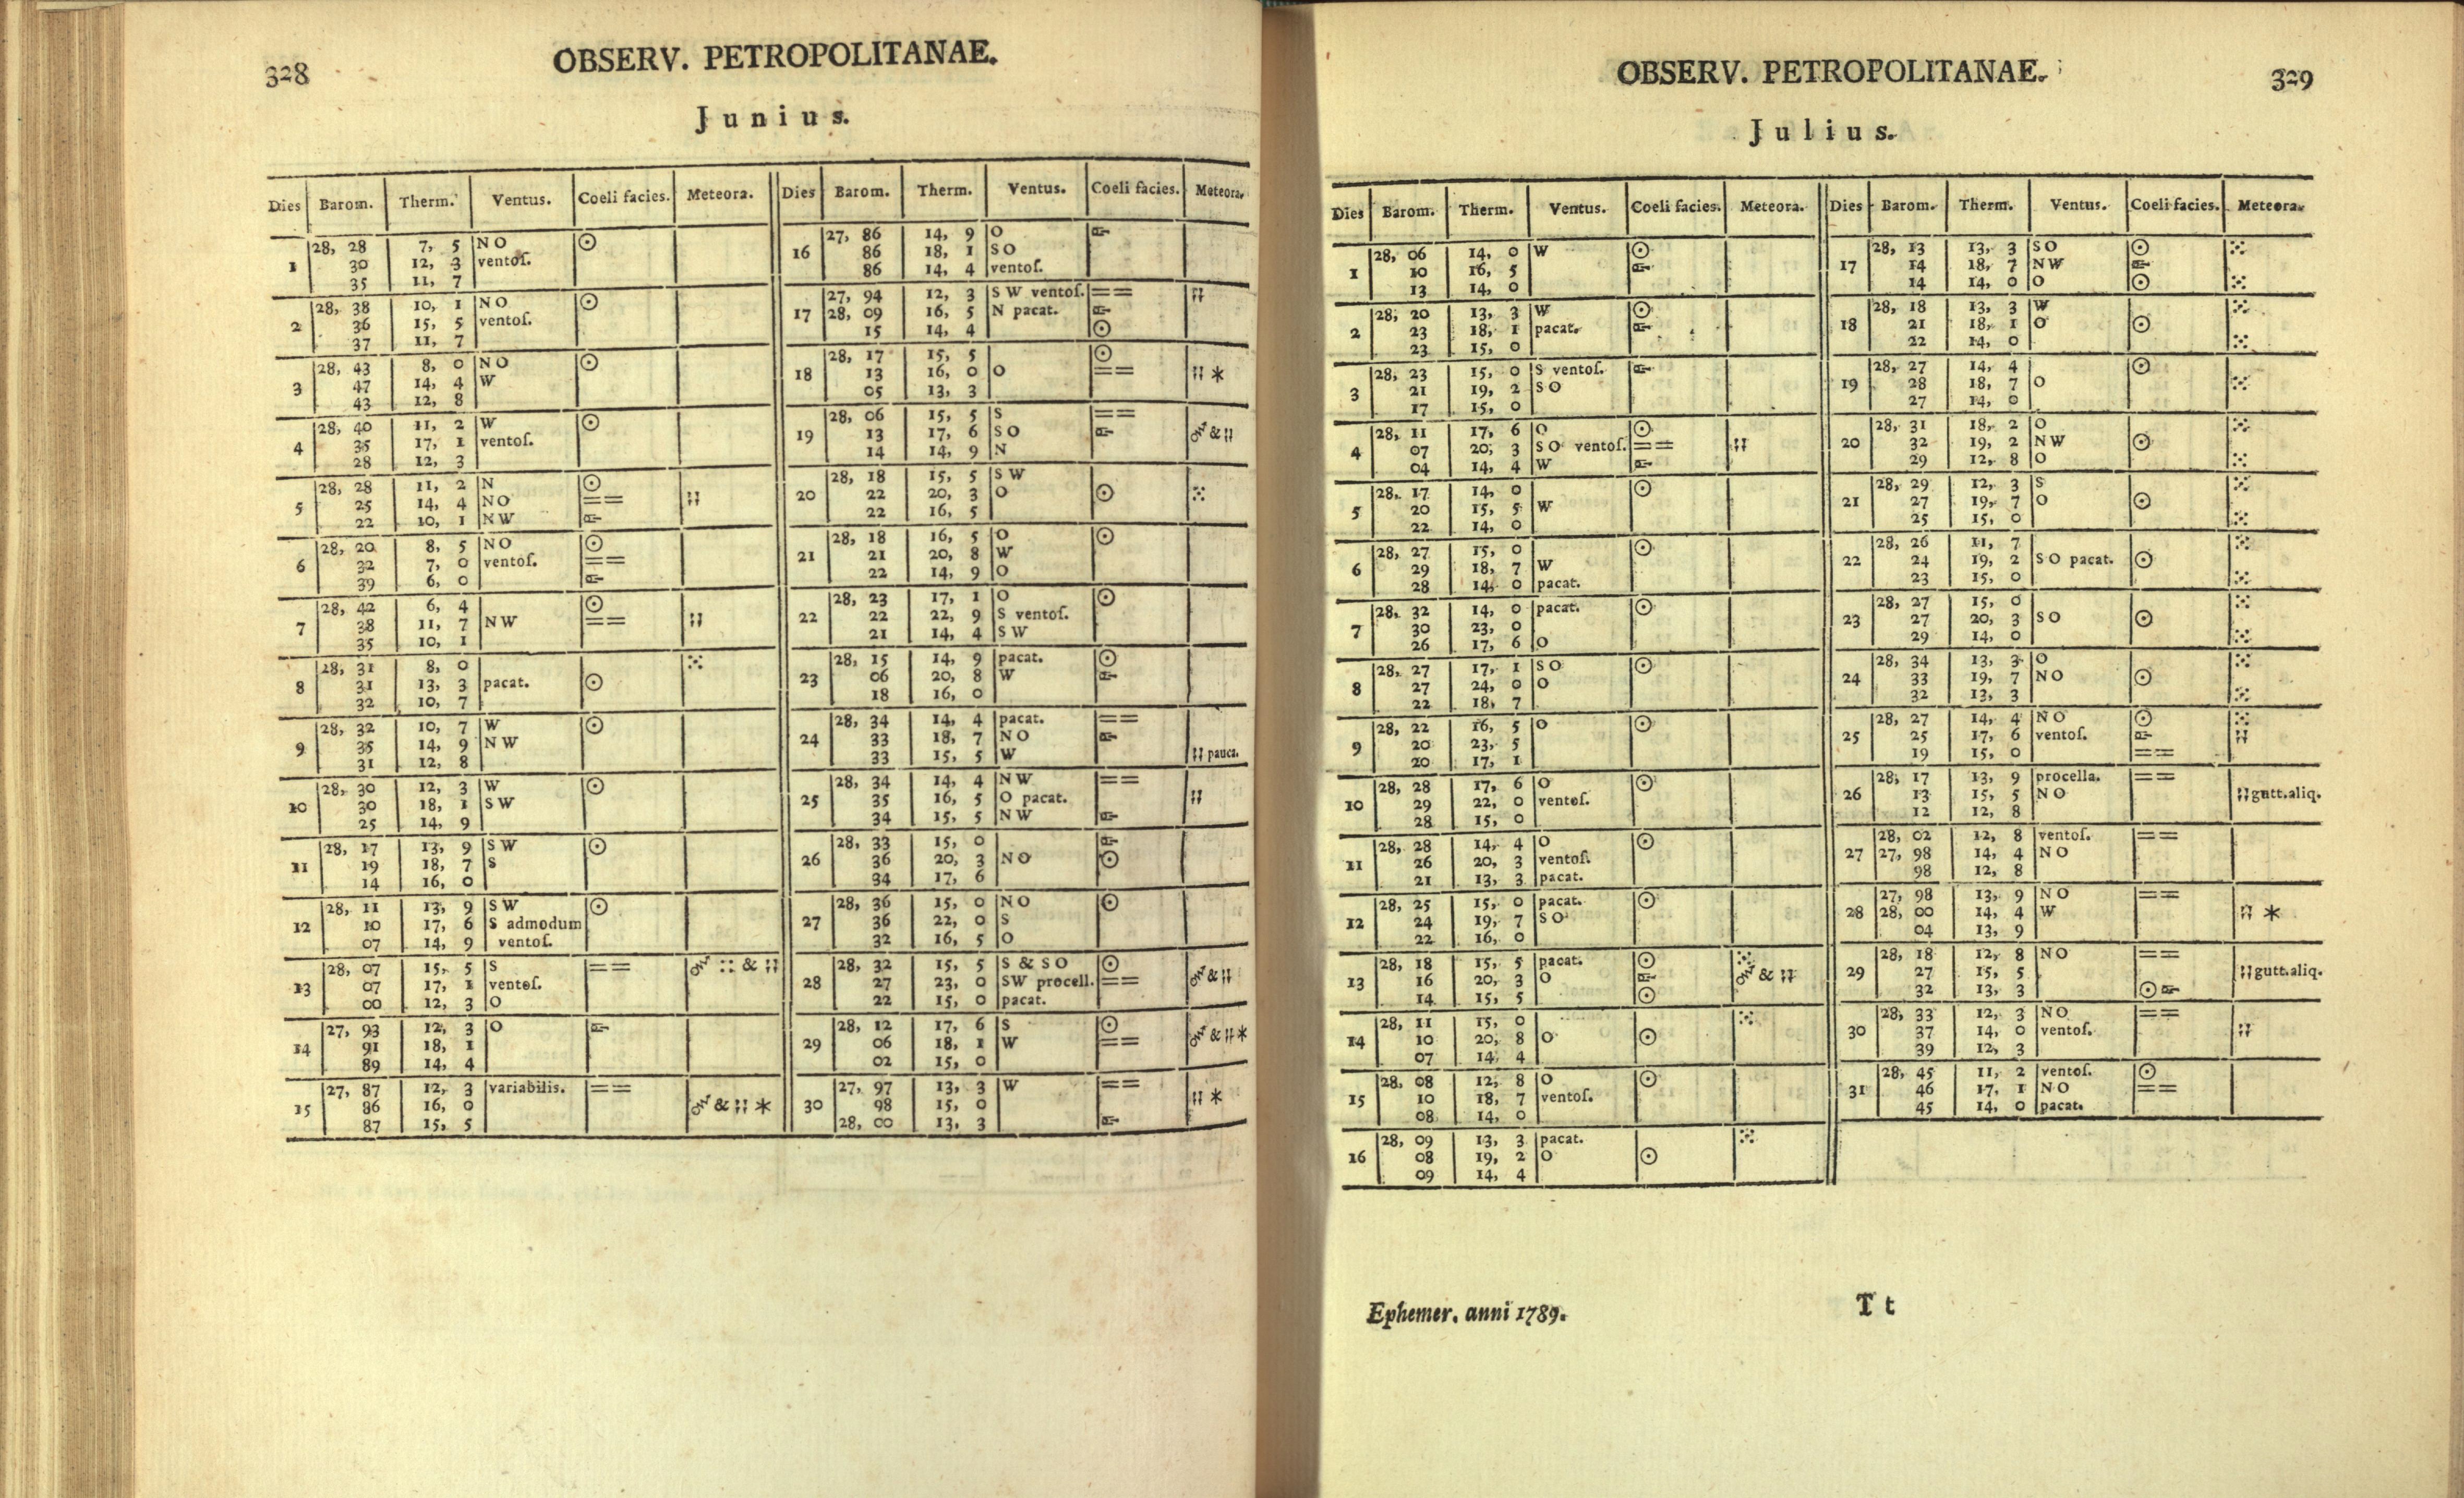 328
OBSERV. PETROPOLITANAE.
Junius.
Dies Barom. Therm. Ventus. Coeli facies. Meteora.
28, 28 7, 5 NO ☉
1 30 12, 3 ventoſ.
35 11, 7
28, 38 10, 1 NO ☉
2 36 15, 5 ventoſ.
37 11, 7
28, 43 8, 0 NO ☉
3 47 14, 4 W
43 12, 8
28, 40 11, 2 W ☉
4 35 17, 1 ventoſ.
28 12, 3
28, 28 11, 2 N ☉
5 25 14, 4 NO ==
22 10, 1 NW
28, 20 8, 5 NO ☉
6 32 7, 0 ventoſ. ==
39 6, 0
28, 42 6, 4 ☉
7 38 11, 7 NW ==
35 10, 1
28, 31 8, 0
8 31 13, 3 pacat. ☉
32 10, 7
28, 32 10, 7 W ☉
9 35 14, 9 NW
31 12, 8
28, 30 12, 3 W ☉
10 30 18, 1 SW
25 14, 9
28, 17 13, 9 SW ☉
11 19 18, 7 S
14 16, 0
28, 11 13, 9 SW ☉
12 10 17, 6 S admodum
07 14, 9 ventoſ.
28, 07 15, 5 S == &
13 07 17, 1 ventoſ.
00 12, 3 O
27, 93 12, 3 O
14 91 18, 1
89 14, 4
27, 87 12, 3 variabilis. ==
15 86 16, 0 & *
87 15, 5
Dies Barom. Therm. Ventus. Coeli facies. Meteora.
27, 86 14, 9 O
16 86 18, 1 SO
86 14, 4 ventoſ.
27, 94 12, 3 SW ventoſ. ==
17 28, 09 16, 5 N pacat.
15 14, 4 ☉
28, 17 15, 5 ☉
18 13 16, 0 O == *
05 13, 3
28, 06 15, 5 S ==
19 13 17, 6 SO &
14 14, 9 N
28, 18 15, 5 SW
20 22 20, 3 O ☉
22 16, 5
28, 18 16, 5 O ☉
21 21 20, 8 W
22 14, 9 O
28, 23 17, 1 O ☉
22 22 22, 9 S ventoſ.
21 14, 4 SW
28, 15 14, 9 pacat. ☉
23 06 20, 8 W
18 16, 0
28, 34 14, 4 pacat. ==
24 33 18, 7 NO
33 15, 5 W pauca.
28, 34 14, 4 NW ==
25 35 16, 5 O pacat.
34 15, 5 NW
28, 33 15, 0
26 36 20, 3 NO ☉
34 17, 6
28, 36 15, 0 NO ☉
27 36 22, 0 S
32 16, 5 O
28, 32 15, 5 S & SO ☉
28 27 23, 0 SW procell. == &
22 15, 0 pacat.
28, 12 17, 6 S ☉
29 06 18, 1 W == & *
02 15, 0
27, 97 13, 3 W ==
30 98 15, 0 *
28, 00 13, 3
OBSERV. PETROPOLITANAE.
329
Julius.
Dies Barom. Therm. Ventus. Coeli facies. Meteora.
28, 06 14, 0 W ☉
1 10 16, 5
13 14, 0
28, 20 13, 3 W ☉
2 23 18, 1 pacat.
23 15, 0
28, 23 15, 0 S ventoſ.
3 21 19, 2 SO
17 15, 0
28, 11 17, 6 O ☉
4 07 20, 3 SO ventoſ. ==
04 14, 4 W
28, 17 14, 0 ☉
5 20 15, 5 W
22 14, 0
28, 27 15, 0 ☉
6 29 18, 7 W
28 14, 0 pacat.
28, 32 14, 0 pacat. ☉
7 30 23, 0
26 17, 6 O
28, 27 17, 1 SO ☉
8 27 24, 0 O
22 18, 7
28, 22 16, 5 O ☉
9 20 23, 5
20 17, 1
28, 28 17, 6 O ☉
10 29 22, 0 ventoſ.
28 15, 0
28, 28 14, 4 O ☉
11 26 20, 3 ventoſ.
21 13, 3 pacat.
28, 25 15, 0 pacat. ☉
12 24 19, 7 SO
22 16, 0
28, 18 15, 5 pacat. ☉
13 16 20, 3 O &
14 15, 5 ☉
28, 11 15, 0
14 10 20, 8 O ☉
07 14, 4
28, 08 12, 8 O ☉
15 10 18, 7 ventoſ.
08 14, 0
28, 09 13, 3 pacat.
16 08 19, 2 O ☉
09 14, 4
Dies Barom. Therm. Ventus. Coeli facies. Meteora.
28, 13 13, 3 SO ☉
17 14 18, 7 NW
14 14, 0 O ☉
28, 18 13, 3 W
18 21 18, 1 O ☉
22 14, 0
28, 27 14, 4 ☉
19 28 18, 7 O
27 14, 0
28, 31 18, 2 O
20 32 19, 2 NW ☉
29 12, 8 O
28, 29 12, 3 S
21 27 19, 7 O ☉
25 15, 0
28, 26 11, 7
22 24 19, 2 SO pacat. ☉
23 15, 0
28, 27 15, 0
23 27 20, 3 SO ☉
29 14, 0
28, 34 13, 3 O
24 33 19, 7 NO ☉
32 13, 3
28, 27 14, 4 NO ☉
25 25 17, 6 ventoſ.
19 15, 0 ==
28, 17 13, 9 procella. ==
26 13 15, 5 NO gutt. aliq.
12 12, 8
28, 02 12, 8 ventoſ. ==
27 27, 98 14, 4 NO
98 12, 8
27, 98 13, 9 NO ==
28 28, 00 14, 4 W *
04 13, 9
28, 18 12, 8 NO ==
29 27 15, 5 gutt. aliq.
32 13, 3 ☉
28, 33 12, 3 NO ==
30 37 14, 0 ventoſ.
39 12, 3
28, 45 11, 2 ventoſ. ☉
31 46 17, 1 NO ==
45 14, 0 pacat.
Ephemer. anni 1789.
T t